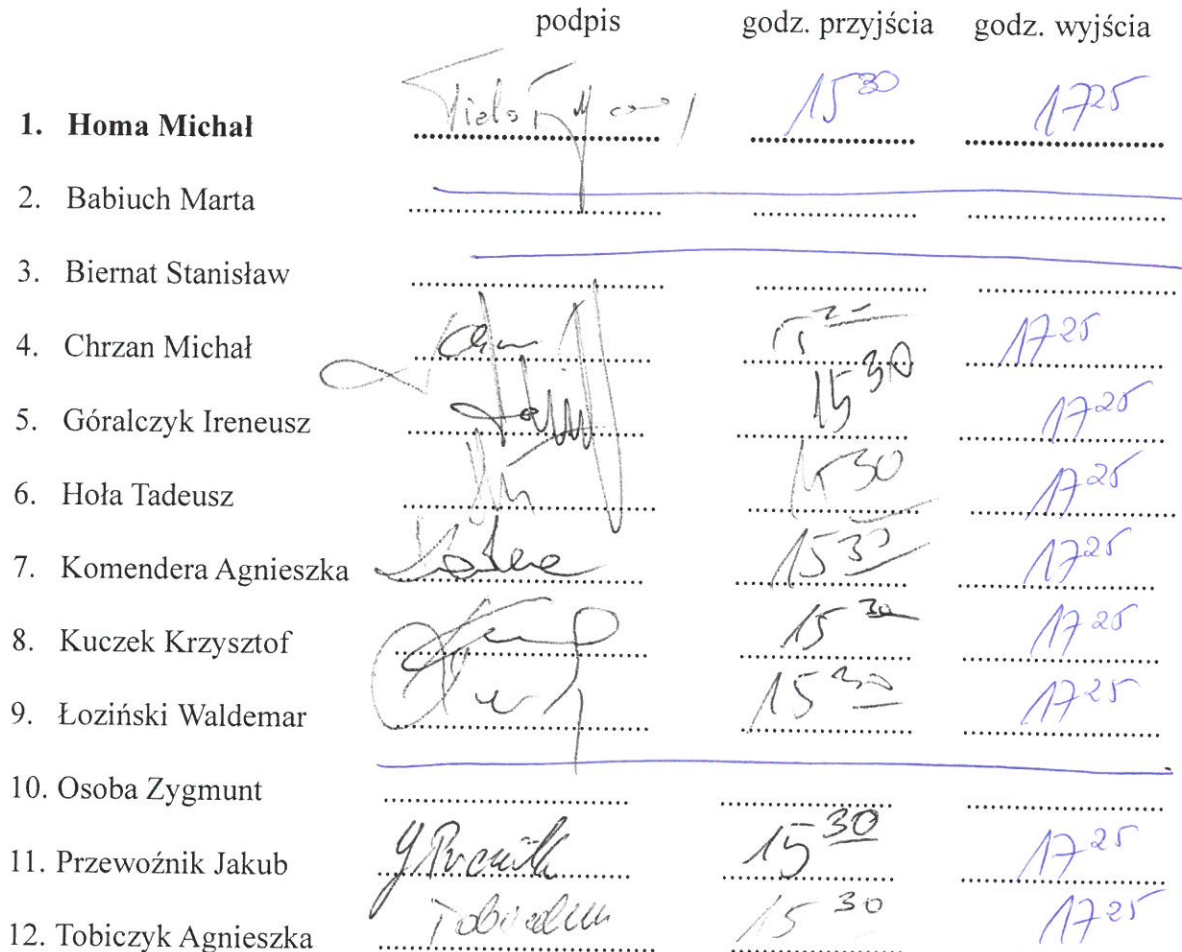 podpis godz. przyjścia godz. wyjścia
1. Homa Michał 15 30 17 25
2. Babiuch Marta
3. Biernat Stanisław
4. Chrzan Michał 17 25
5. Góralczyk Ireneusz 15 30 17 25
6. Hoła Tadeusz 15 30 17 25
7. Komendera Agnieszka 15 30 17 25
8. Kuczek Krzysztof 15 30 17 25
9. Łoziński Waldemar 15 30 17 25
10. Osoba Zygmunt
11. Przewoźnik Jakub 15 30 17 25
12. Tobiczyk Agnieszka 15 30 17 25